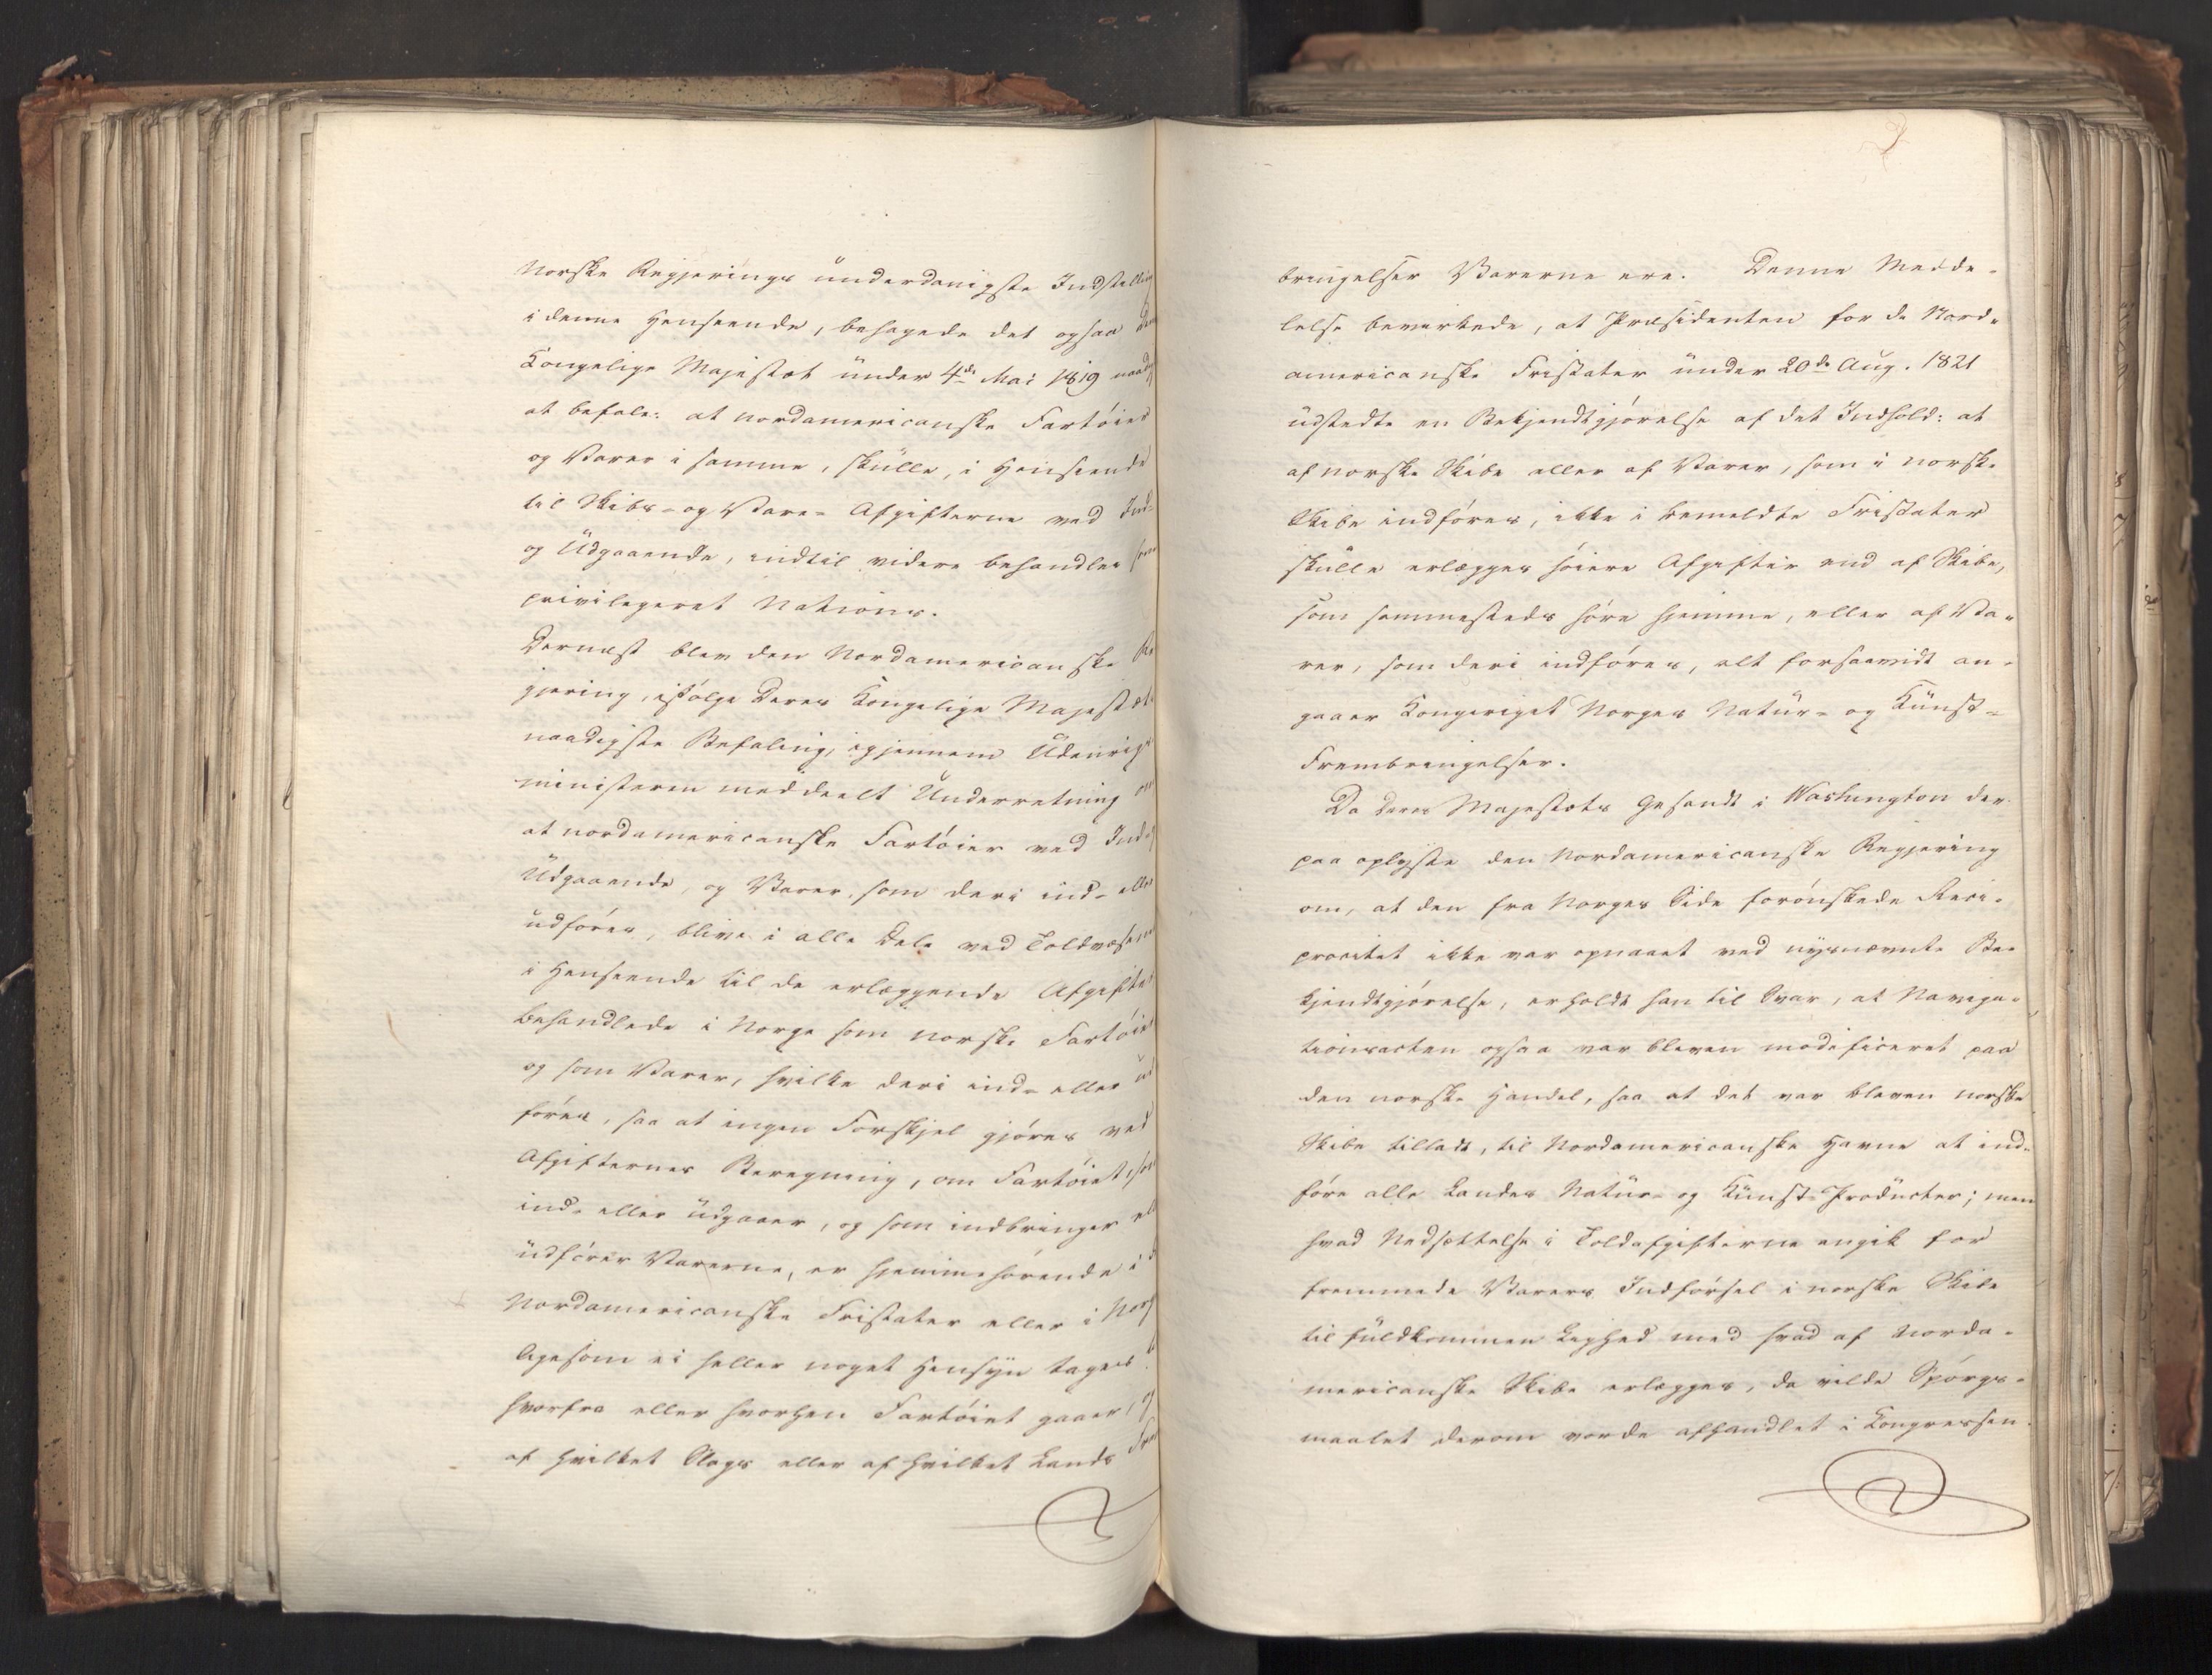 Norske Regjerings underdanigste Indstilling
i denne Henseende, behagede det ogsaa
Kongelige Majestæt under 4de Mai 1819 naadigst
at befale: at nordamericanske Fartöier
og Varer i samme, skulle, i Henseende
til Skibs- og Vare-Afgifterne ved Ind-
og Udgaaende, indtil videre behandles som
privilegeret Nations.
Dernæst blev den Nordamericanske Re
gjering, ifölge Deres Kongelige Majestæts
naadigste Befaling, igjennem Udenrigs
ministeren meddeelt Underretning om
at nordamericanske Fartöier ved Ind-
Udgaaende, og Varer, som deri ind- eller
udföres, blive i alle Dele ved Toldvæsenet
i Henseende til de erlæggende Afgifter
behandlede i Norge som norske Fartöier
og som Varer, hvilke deri ind- eller ud
föres, saa at ingen Forskjel gjöres ved
Afgifternes Beregning, om Fartöiet, som
ind- eller udgaaer, og som indbringer ell
udförer Varerne, er hjemmehörende i d
Nordamericanske Fristater eller i Nor
ligesom ei heller noget Hensyn tages
hvorfra eller hvorhen Fartöiet gaaer, og
af hvilket Slags eller af hvilket Lands Frem
bringelser Varerne ere. Denne Medde-
lelse bevirkede, at Præsidenten for de Nord-
americanske Fristater under 20de Aug. 1821
udstedte en Bekjendtgjörelse af det Indhold: at
af norske Skibe eller af Varer, som i norske
Skibe indföres, ikke i bemeldte Fristater
skulle erlægges höiere Afgifter end af Skibe,
som sammesteds höre hjemme, eller af Va-
rer, som deri indföres, alt forsaavidt an-
gaaer Kongeriget Norges Natur- og Kunst-
Frembringelser.
Da Deres Majestæts Gesandt i Washington der-
paa oplyste den Nordamericanske Regjering
om, at den fra Norges Side forönskede Reci-
procitet ikke var opnaaet ved nysnævnte Be-
kjendtgjörelse, erholdt han til Svar, at Naviga-
tionsacten ogsaa var bleven modificeret paa
den norske Handel, saa at det var bleven norske
Skibe tilladt, til Nordamericanske Havne at ind-
före alle Landes Natur- og Kunst-Producter; men
hvad Nedsættelse i Toldafgifterne angik for
fremmede Varers Indförsel i norske Skibe
til fuldkommen Lighed med hvad af Norda-
mericanske Skibe erlægges, da vilde Spörgs-
maalet derom vorde afhandlet i Congressen.